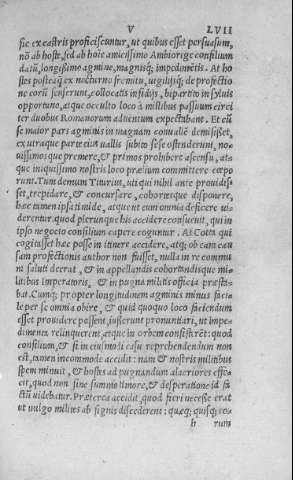 V LVII
sic ex castris proficiscuntur, ut quibus esset persuasum,
nõ ab hoste, sed ab hoĩe amicissimo Ambiorige consilium
datũ, longissimo agmine, magnisq; impedimētis. At ho
stes posteaq̃ ex nocturno fremitu, uigilijsq; de profectio
ne eorũ senserunt, collocatis insidijs, bipartito in syluis
opportuno, atque occulto loco à millibus passuum circi
ter duobus Romanorum aduentum expectabant. Et cũ
se maior pars agminis in magnam conuallē demisisset,
ex utraque parte eius uallis subitò sese ostenderunt, no
uissimosque premere, & primos prohibere ascensu, atq
que iniquissimo nostris loco prælium committere cœpe
runt. Tum demum Titurius, uti qui nihil ante prouidis
set, trepidare, & concursare, cohortesque disponere,
hæc tamen ipsa timidè, atque ut eum omnia deficere ui
derentur. quod plerunque his accidere consueuit, qui in
ipso negocio consilium capere coguntur. At Cotta qui
cogitasset hæc posse in itinere accidere, atq; ob eam cau
sam profectionis author non fuisset, nulla in re commu
ni saluti deerat, & in appellandis cohortandisque mi-
litibus Imperatoris, & in pugna militis officia præsta-
bat. Cunq; propter longitudinem agminis minus facilè
le per se omnia obire, & quid quoquo loco faciendum
esset prouidere possent, iusserunt pronuntiari, ut impe-
dimenta relinquerent, atque in orbem cōsisterēt: quod
consilium, & si in eiusmodi casu reprehendendum non
est, tamen incommode accidit: nam & nostris militibus
spem minuit, & hostes ad pugnandum alacriores effe-
cit, quod non sine summo timore, & desperatione id fa
ctũ uidebatur. Præterea accidit, quod fieri necesse erat
ut uulgo milites ab signis discederent: quæq; quisq; eo-
h rum